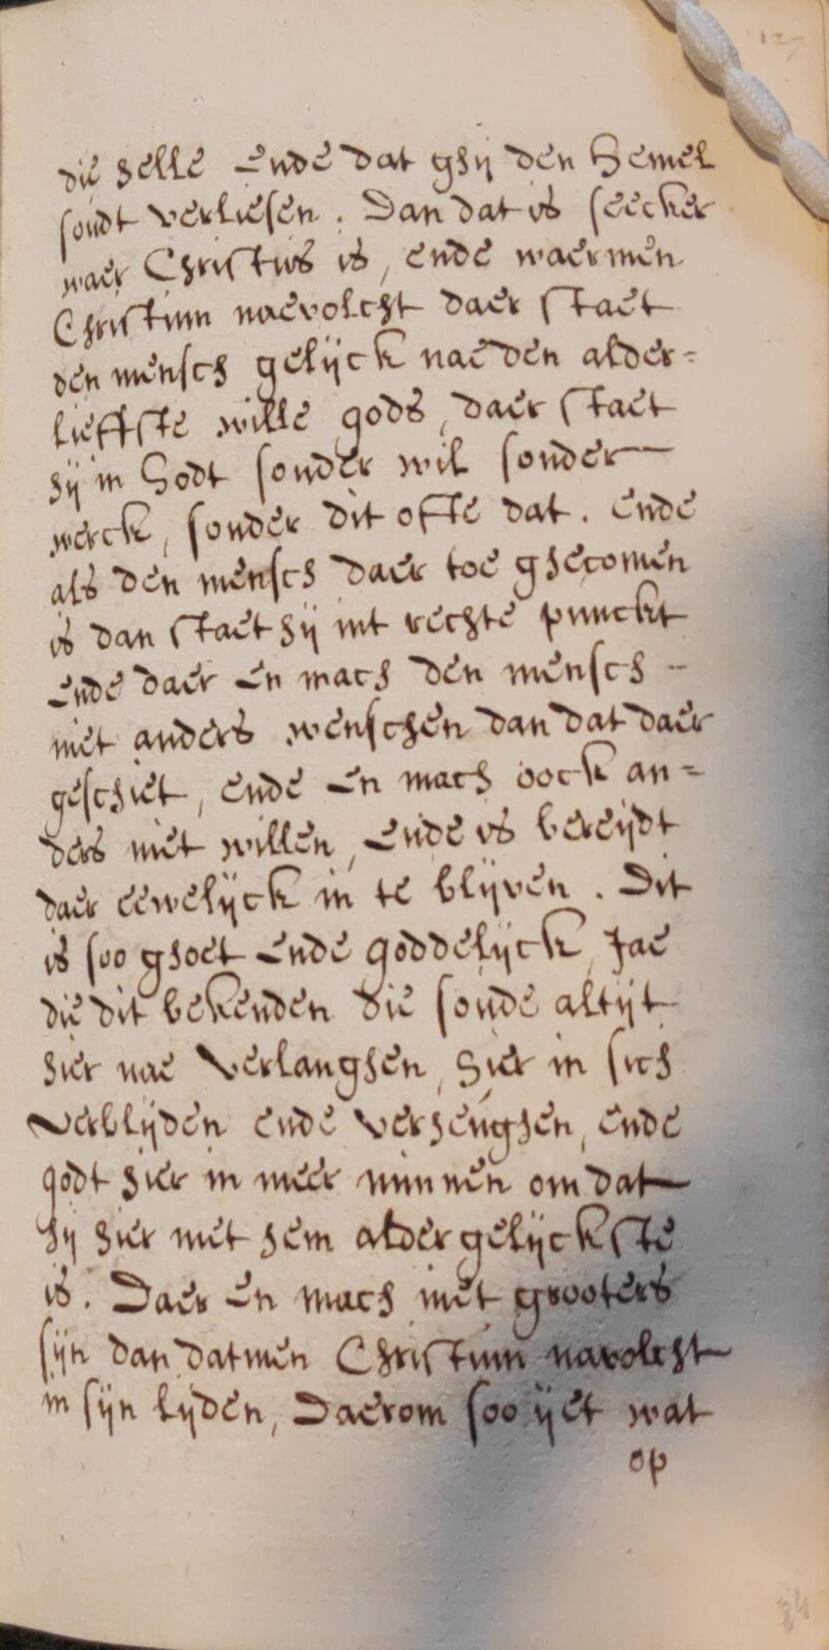 127
die helle Ende dat ghij den Hemel
soudt verliesen. Dan dat is seecker
waer Christus is, ende waermen
Christum naevolcht daer staet
den mensch gelijck nae den alder=
lieffste wille gods, daer staet
hij in Godt sonder wil sonder
werck, sonder dit ofte dat. Ende
als den mensch daer toe ghecomen
is dan staet hij int rechte punckt
Ende daer En mach den mensch -
niet anders wenschen dan dat daer
geschiet, ende En mach oock an=
ders niet willen, Ende is bereijdt
daer eewelijck in te blijven. Dit
is soo ghoet Ende goddelijck, Jae
die dit bekenden die soude altijt
hier nae verlanghen, hier in sich
verblijden ende verheughen, ende
godt hier in meer minnen om dat
hij hier met hem aldergelijckste
is. Daer En mach niet grooters
sijn dan datmen Christum navolcht
in sijn lijden, Daerom soo ijet wat
op
84